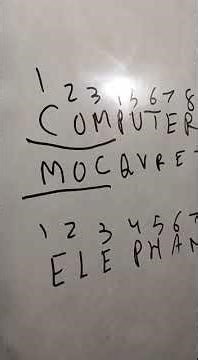 1 2 3 4 5 6 7 8
COMPUTER
MOCQVRE
1 2 3 4 5 6 7
ELEPHAN